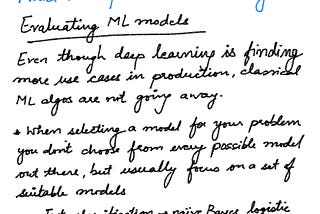 Evaluating ML models
Even though deep learning is finding
more use cases in production, classical
ML algos are not going away.
* When selecting a model for your problem
you don't choose from every possible model
out there, but usually focus on a set of
suitable models
naive Bayes, logistic